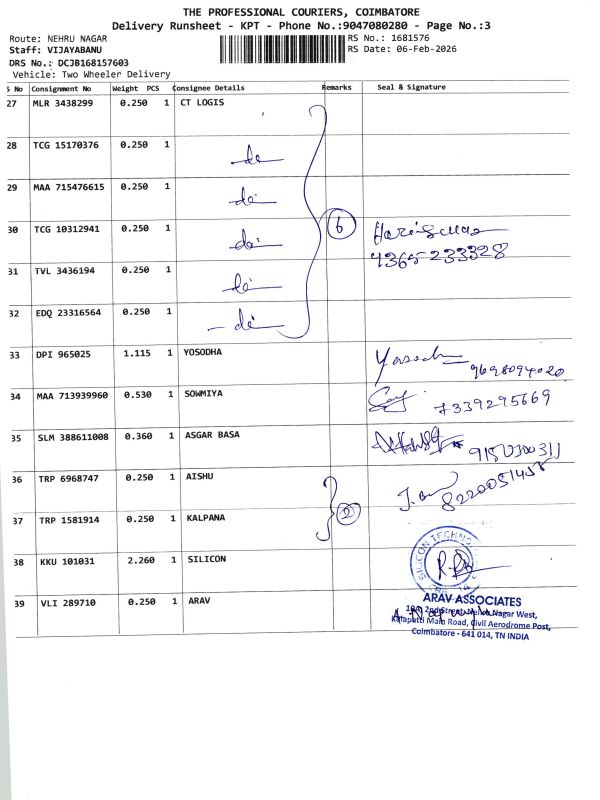 THE PROFESSIONAL COURIERS, COIMBATORE
Delivery Runsheet - KPT - Phone No.:9047080280 - Page No.:3
Route: NEHRU NAGAR RS No.: 1681576
Staff: VIJAYABANU RS Date: 06-Feb-2026
DRS No.: DCJB168157603
Vehicle: Two Wheeler Delivery
S No Consignment No Weight PCS Consignee Details Remarks Seal & Signature
27 MLR 3438299 0.250 1 CT LOGIS
28 TCG 15170376 0.250 1 do
29 MAA 715476615 0.250 1 do
30 TCG 10312941 0.250 1 do 6
31 TVL 3436194 0.250 1 do
32 EDQ 23316564 0.250 1 do
33 DPI 965025 1.115 1 YOSODHA
34 MAA 713939960 0.530 1 SOWMIYA 7339295669
35 SLM 388611008 0.360 1 ASGAR BASA
36 TRP 6968747 0.250 1 AISHU
37 TRP 1581914 0.250 1 KALPANA 2
38 KKU 101031 2.260 1 SILICON
39 VLI 289710 0.250 1 ARAV
SILICON TECHNO
ARAV ASSOCIATES
2nd Street, Nehru Nagar West,
Kalapatti Main Road, Civil Aerodrome Post,
Coimbatore - 641 014, TN INDIA